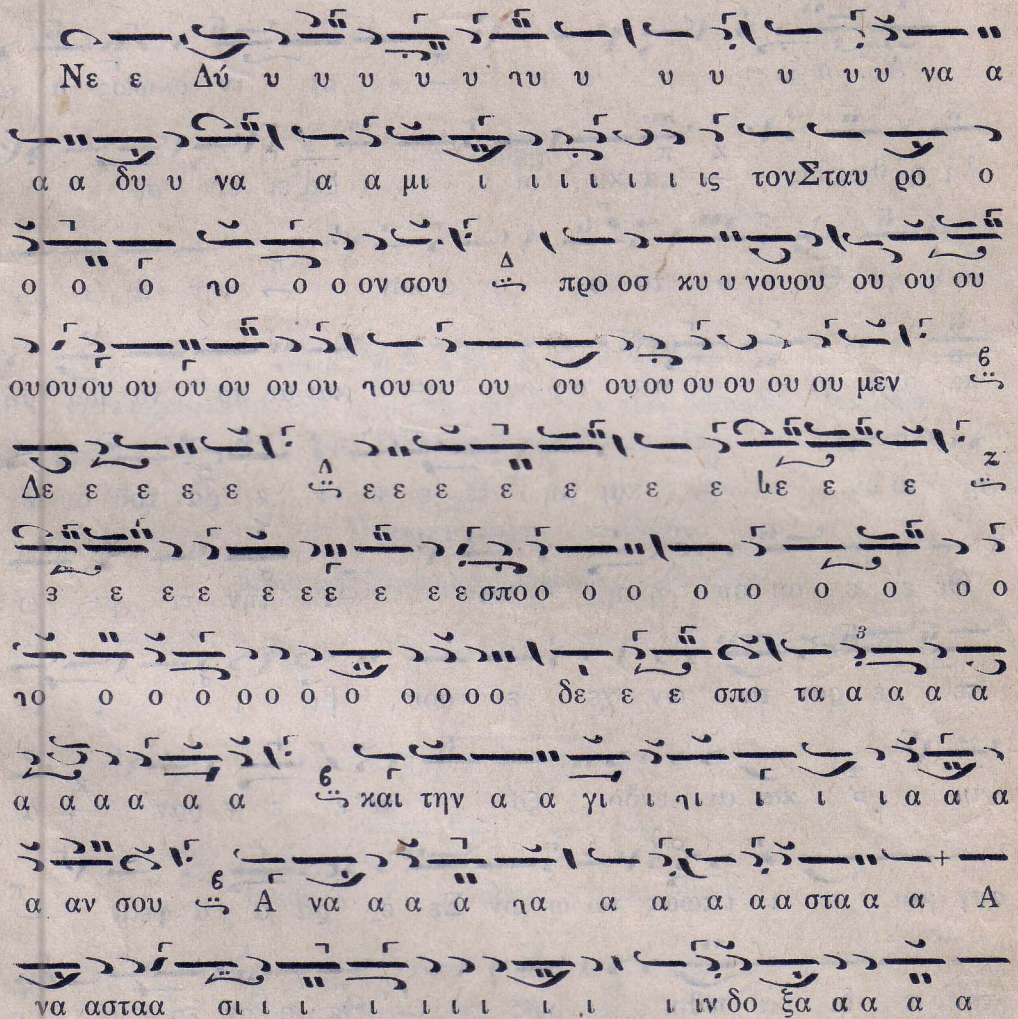 Νε ε Δύ υ υ υ υ υ ιυ υ υ υ υ υ υ να α
α α δυ υ να α α μι ι ι ι ι ι ι ις τον Σταυ ρο ο
ο ο ο ιο ο ο ον σου Δ προ οσ κυ υ νουου ου ου ου
ου ου ου ου ου ου ου ου ιου ου ου ου ου ου ου ου ου ου μεν β
Δε ε ε ε ε Δ ε ε ε ε ε ε ε ιε ε ε Ζ
ε ε ε ε ε ε ε ε ε ε σπο ο ο ο ο ο ο ο ο ο ο
ιο ο ο ο ο ο ο ο ο ο ο ο δε ε ε σπο τα α α α α α
α α α α α α β και την α α γι ι ιι ι ι ι ι α α α α
α αν σου β Α να α α α ια α α α α α στα α α Α
να ασταα σι ι ι ι ι ι ι ι ι ι ι ιν δο ξα α α α α